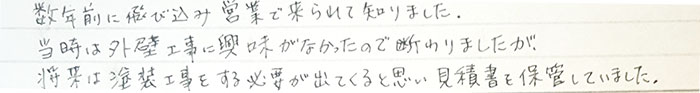 数年前に飛び込み営業で来られて知りました.
当時は外壁工事に興味がなかったので断わりましたが.
将来は塗装工事をする必要が出てくると思い見積書を保管していました.